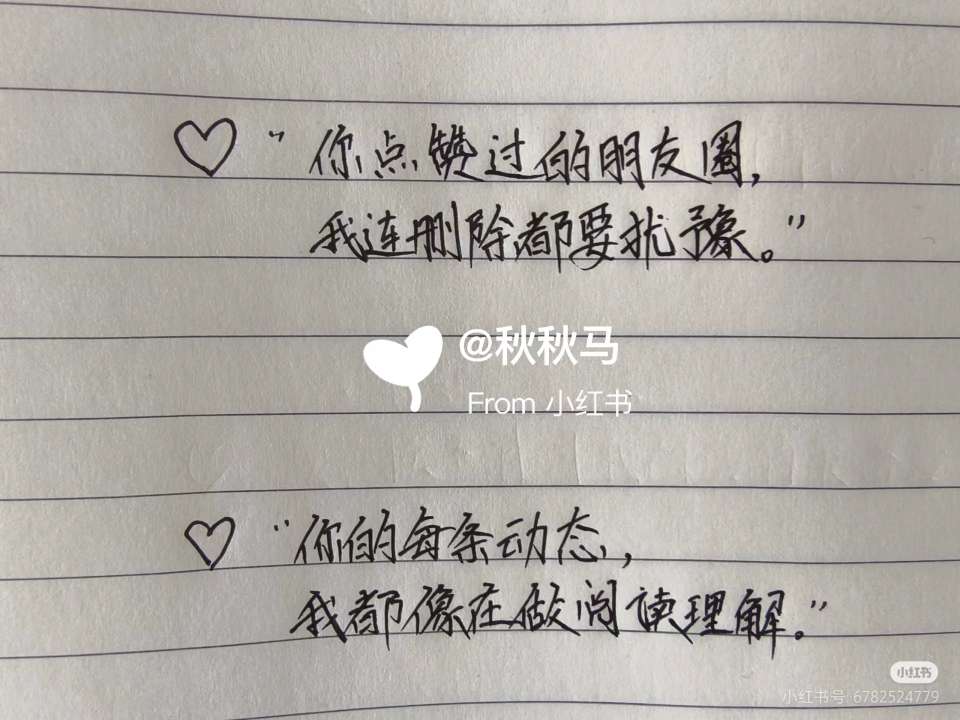 ♡ "你点赞过的朋友圈,
我连删除都要犹豫。"
@秋秋马
From 小红书
♡ "你的每条动态,
我都像在做阅读理解。"
小红书
小红书号 6782524779